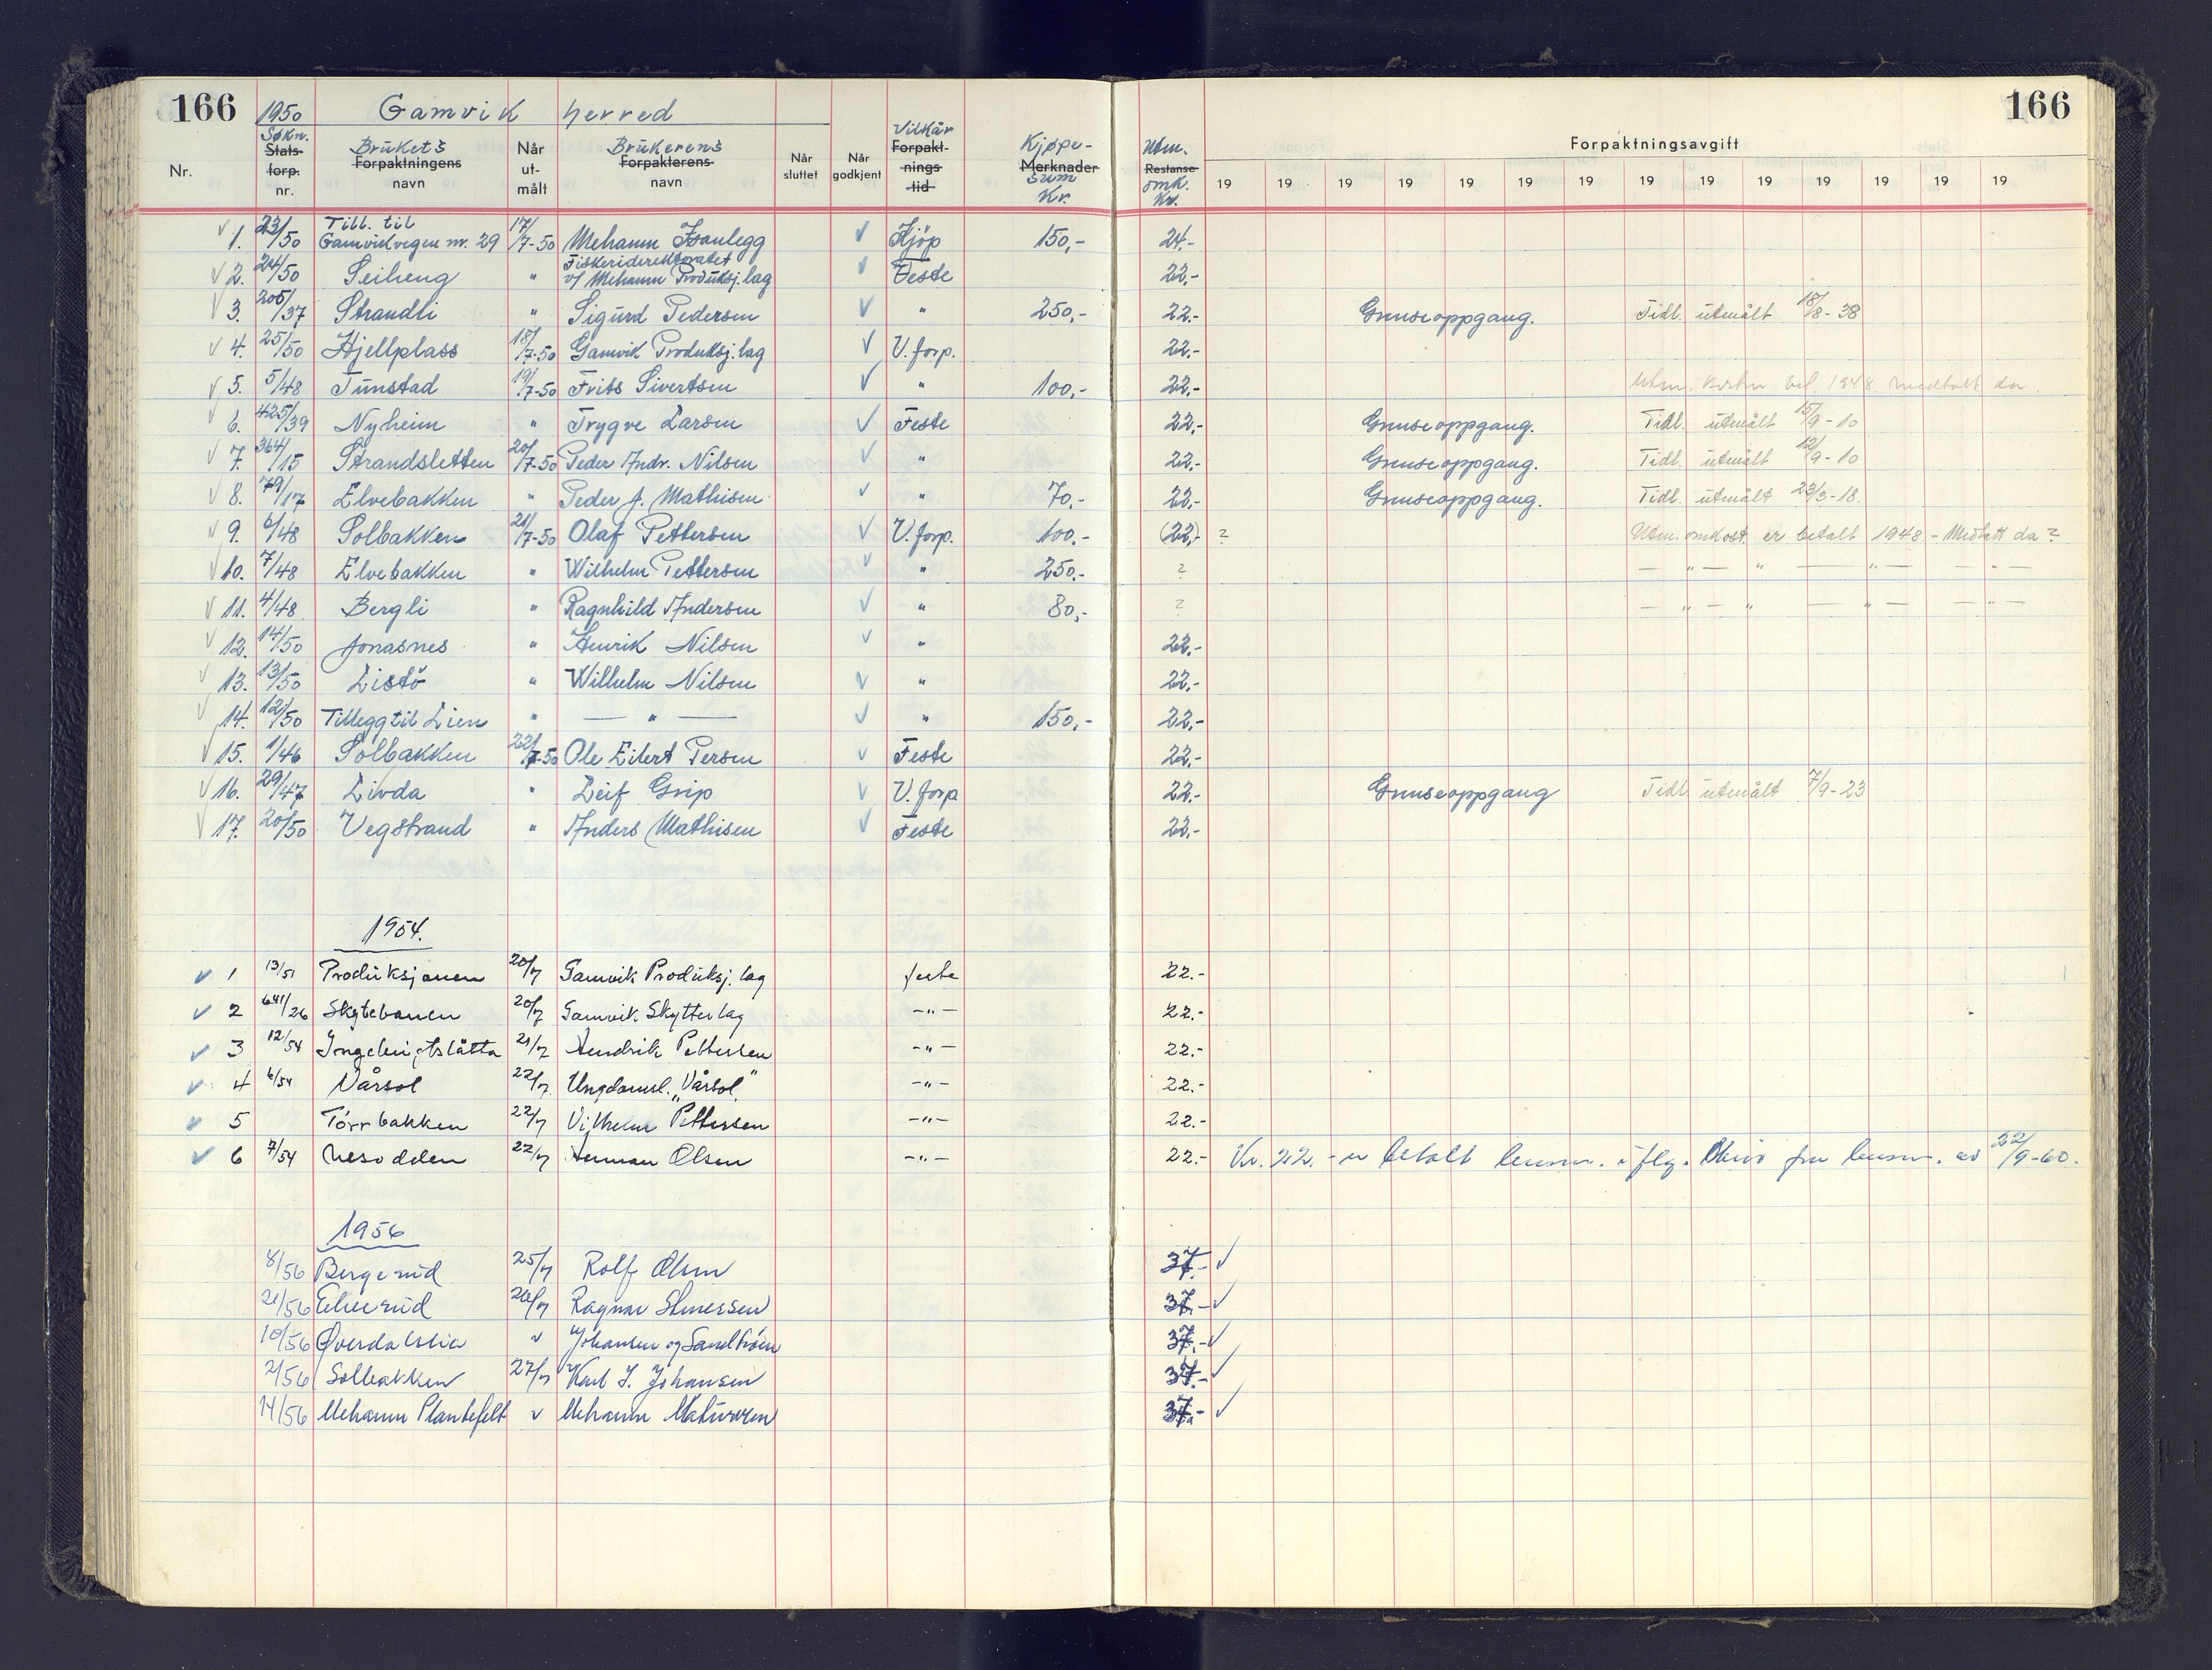 166 1950 Gamvik herred 166
Nr. Søkn. Stats- forp. nr. Brukets Forpaktningens navn Når ut- målt Brukerens Forpakterens navn Når sluttet Når godkjent Vilkår Forpakt- nings tid Kjøpe- Merknader sum Kr. Utm. Restanse omk. Kr. Forpaktningsavgift
19 19 19 19 19 19 19 19 19 19 19 19 19 19
✓ 1. 23/50 Till. til Gamvikvegen nr. 29 17/7-50 Mehamn Isanlegg ✓ Kjöp 150,- 24.-
✓ 2. 24/50 Seiheng " Fiskeridirektoratet v/ Mehamn Produksj. lag ✓ Feste 22,-
✓ 3. 205/37 Strandli " Sigurd Pedersen ✓ " 250,- 22.- Grenseoppgang. Tidl. utmålt 18/8-38
✓ 4. 25/50 Hjellplass 18/7-50 Gamvik Produksj. lag ✓ V. forp. 22.-
✓ 5. 5/48 Tunstad 19/7-50 Frits Sivertsen ✓ " 100,- 22.- Utm. bet. 1948. medtatt da.
✓ 6. 425/39 Nyheim " Trygve Larsen ✓ Feste 22,- Grenseoppgang. Tidl. utmålt 15/9-10
✓ 7. 364/15 Strandsletten 20/7-50 Peder Andr. Nilsen ✓ " 22,- Grenseoppgang. Tidl. utmålt 12/9-10
✓ 8. 79/17 Elvebakken " Peder J. Mathisen ✓ " 70,- 22,- Grenseoppgang. Tidl. utmålt 23/3-18.
✓ 9. 6/48 Solbakken 21/7-50 Olaf Pettersen ✓ V. forp. 100.- (22,-) ? Utm. omkost. er betalt 1948 - Medtatt da?
✓ 10. 7/48 Elvebakken " Wilhelm Pettersen ✓ " 250.- ? — " — " — " — — " —
✓ 11. 4/48 Bergli " Ragnhild Andersen ✓ " 80,- ? — " — " — " — — " —
✓ 12. 14/50 Jonasnes " Henrik Nilsen ✓ " 22.-
✓ 13. 13/50 Listö " Wilhelm Nilsen ✓ " 22,-
✓ 14. 12/50 Tillegg til Lien " — " — ✓ " 150,- 22,-
✓ 15. 1/46 Solbakken 22/7-50 Ole Eilert Persen ✓ Feste 22,-
✓ 16. 29/47 Livda " Leif Grip ✓ V. forp 22.- Grenseoppgang Tidl utmålt 7/9-23
✓ 17. 20/50 Vegstrand " Anders Mathisen ✓ Feste 22,-
1954.
✓ 1 13/51 Produksjonen 20/7 Gamvik Produksj. lag feste 22.-
✓ 2 641/26 Skytebanen 20/7 Gamvik Skytterlag —"— 22.-
✓ 3 12/54 21/7 Hendrik Pettersen —"— 22.-
✓ 4 6/54 Vårsol 22/7 Ungdomsl. „Vårsol" —"— 22.-
✓ 5 Törrbakken 22/7 Vilhelm Pettersen —"— 22.-
✓ 6 7/54 Nesodden 22/7 Herman Olsen —"— 22.- Kr. 22.- er betalt lensm. iflg. skriv fra lensm. av 22/9-60.
1956
8/56 Bergerud 25/7 Rolf Olsen 37.- ✓
21/56 26/7 Ragnar 37.- ✓
10/56 Øverdalslia " Johansen og Sandström 37.- ✓
2/56 Solbakken 27/7 Karl J. Johansen 37.- ✓
14/56 Mehamn Plantefelt " Mehamn 37.- ✓